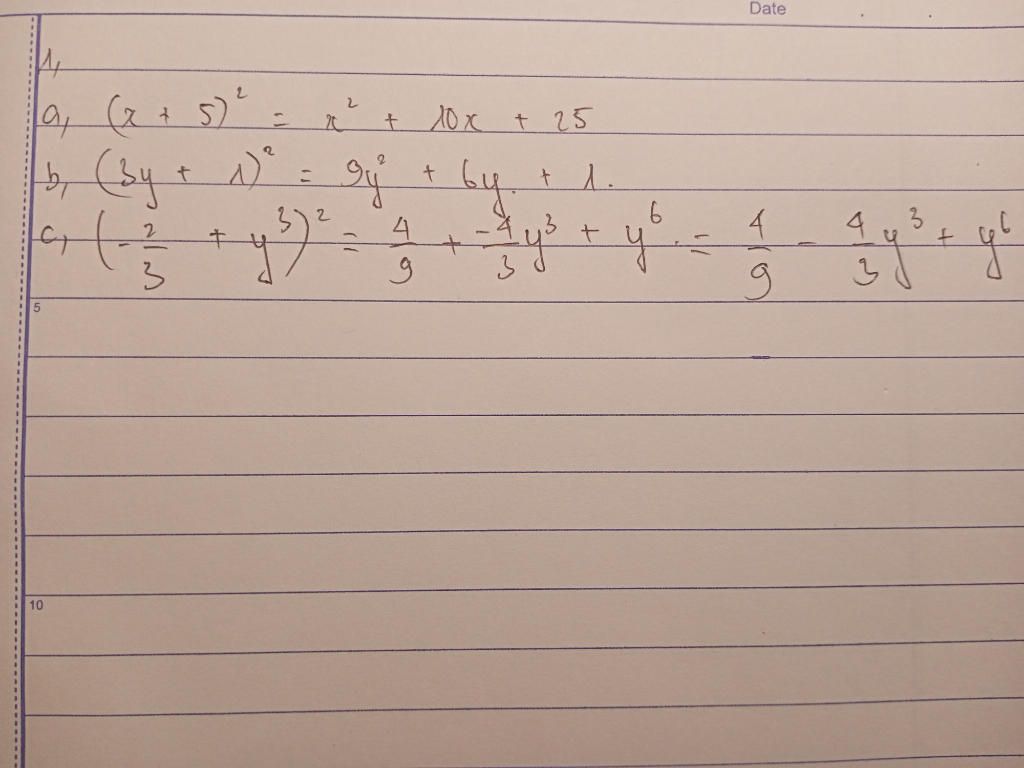 Date
1,
a, (x + 5)² = x² + 10x + 25
b, (3y + 1)² = 9y² + 6y. + 1.
c, (-2/3 + y³)² = 4/9 + -4/3 y³ + y⁶. = 4/9 - 4/3 y³ + y⁶
5
10